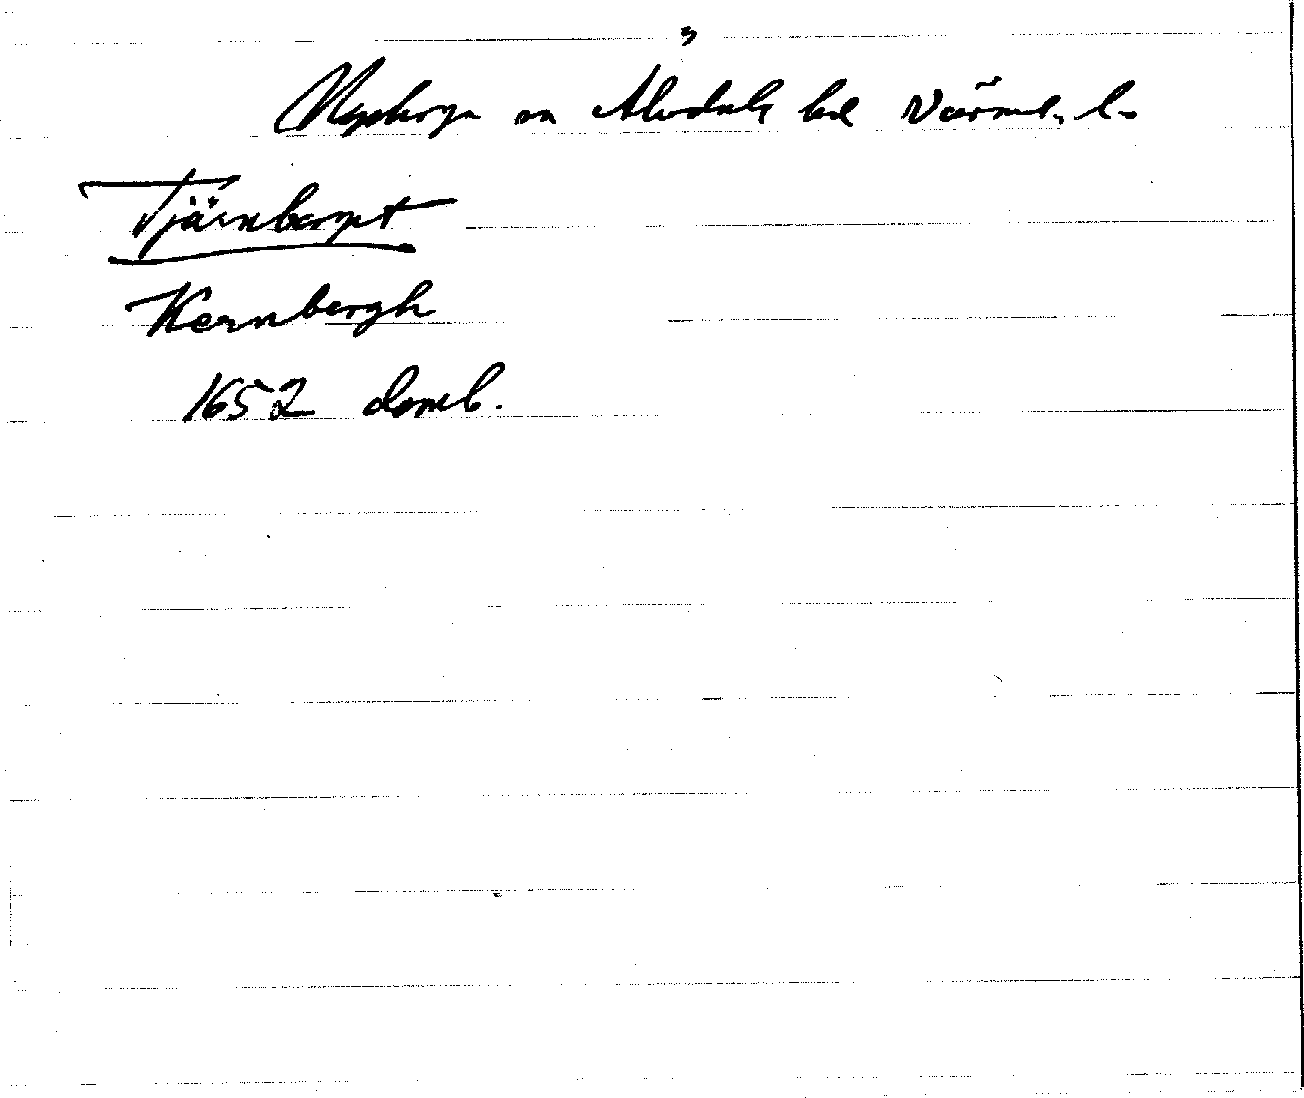 3
Nyskoga sn Älvdals hd Värml. l.
Tjärnberget
Kernbergh
1652 domb.